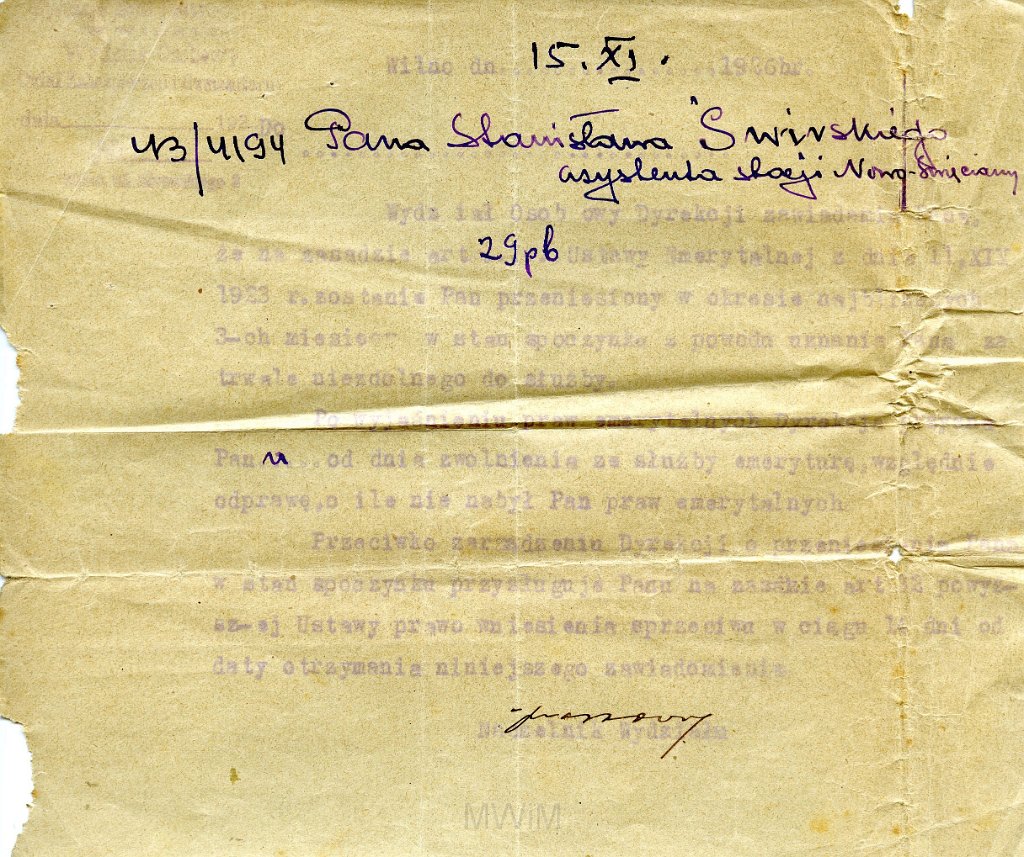 Wilno dn. 15.XI. 1926hr.
Do
N3/4194 Pana Stanisława Świrskiego
asystenta stacji Nowo-Święciany
Wydz iał Osob owy Dyrekcji zawiadamia
że na zasadzie art 29pb Ustawy Emerytalnej z dnia
1923 r.zostanie Pan przeniesiony w okresie najbliższych
3-ch miesięcy w stan spoczynku z powodu uznania Pana za
trwale niezdolnego do służby.
Po wyjaśnieniu praw emerytalnych Dyrekcja
Pan u ...od dnia zwolnienia ze służby emeryturę,względnie
odprawę,o ile nie nabył Pan praw emerytalnych
Przeciwko zarządzeniu Dyrekcji o przeniesieniu Pana
w stan spoczynku przysługuje Panu na zasadzie art 12 powyż-
sz-ej Ustawy prawo wniesienia sprzeciwu w ciągu 14 dni od
daty otrzymania niniejszego zawiadomienia
Naczelnik Wydziału
MWiM